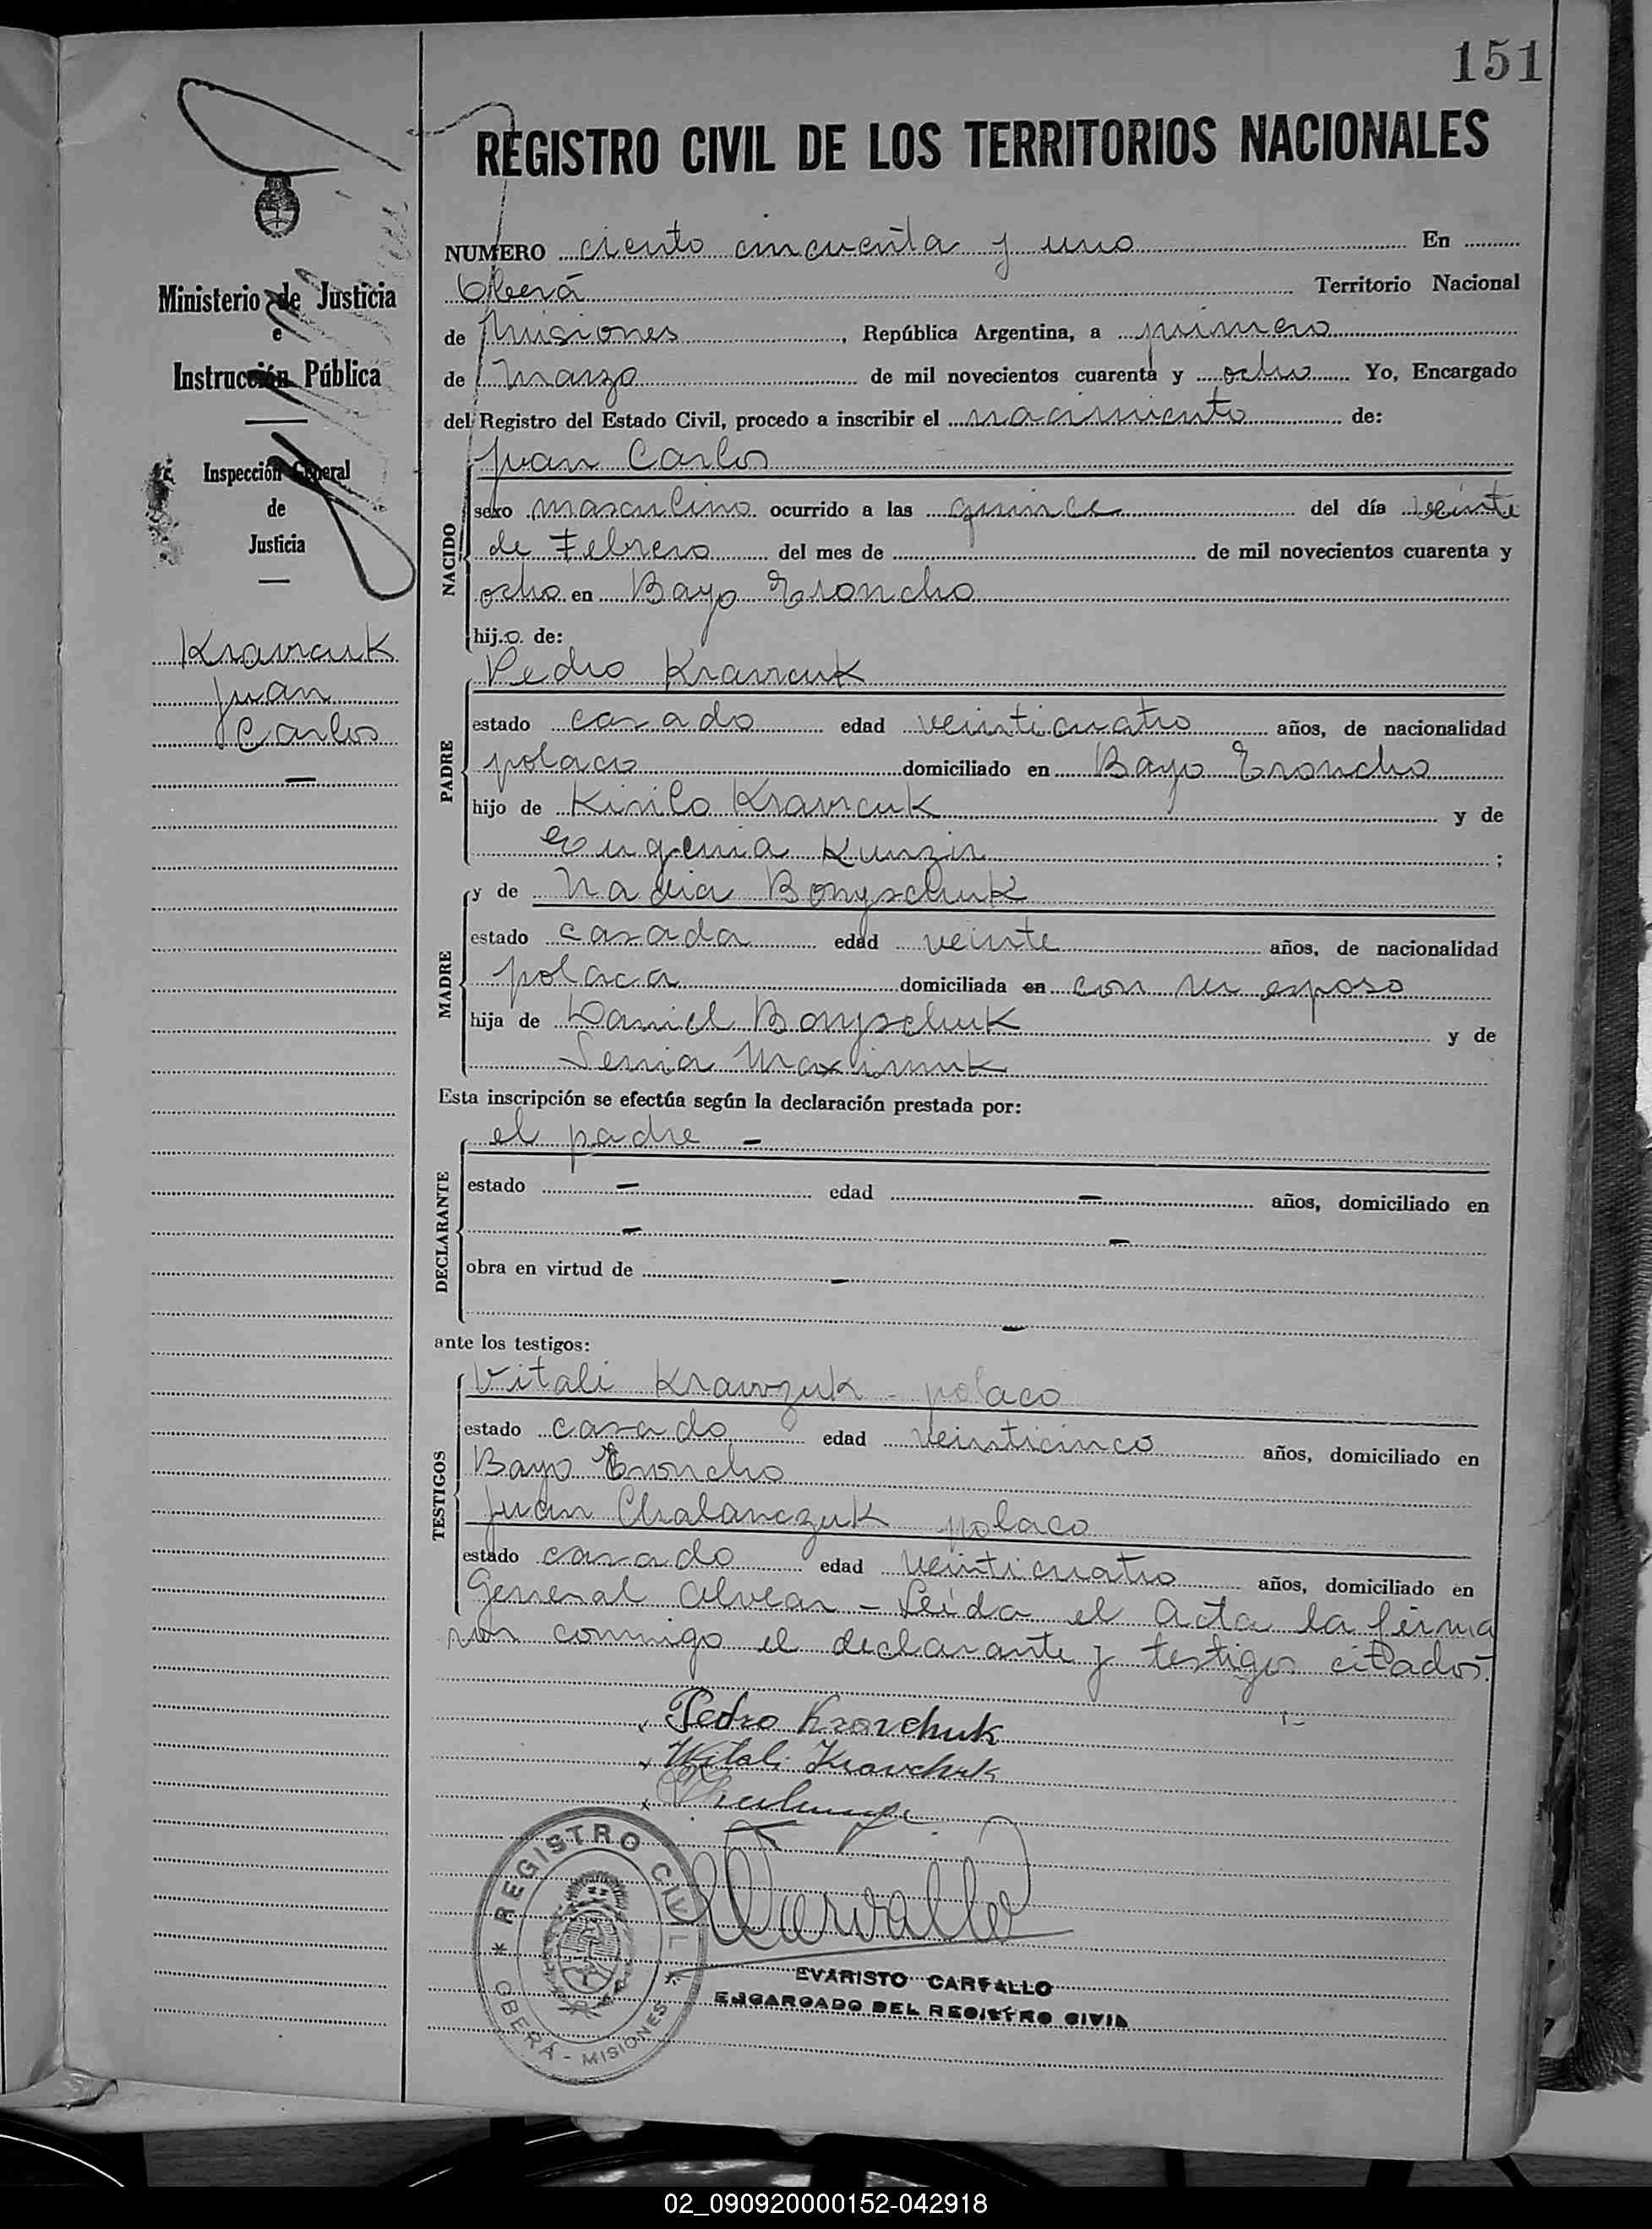 151
REGISTRO CIVIL DE LOS TERRITORIOS NACIONALES
Ministerio de Justicia
e
Instrucción Pública
Inspección General
de
Justicia
Kravcuk
Juan
Carlos
NUMERO ciento cincuenta y uno En
Oberá Territorio Nacional
de Misiones, República Argentina, a primero
de Marzo de mil novecientos cuarenta y ocho Yo, Encargado
del Registro del Estado Civil, procedo a inscribir el nacimiento de:
NACIDO
Juan Carlos
sexo masculino ocurrido a las quince del día veinte
de Febrero del mes de de mil novecientos cuarenta y
ocho en Bayo Troncho
hijo de:
PADRE
Pedro Kravcuk
estado casado edad veinticuatro años, de nacionalidad
polaco domiciliado en Bayo Troncho
hijo de Kirilo Kravcuk y de
Eugenia Kunzin ;
MADRE
y de Nadia Bonyschuk
estado casada edad veinte años, de nacionalidad
polaca domiciliada en con su esposo
hija de Daniel Bonyschuk y de
Senia Maximuk
Esta inscripción se efectúa según la declaración prestada por:
DECLARANTE
el padre -
estado - edad - años, domiciliado en
- -
obra en virtud de -
-
ante los testigos:
TESTIGOS
Vitali Krawzuk - polaco
estado casado edad veinticinco años, domiciliado en
Bayo Troncho
Juan Chalanczuk polaco
estado casado edad veinticuatro años, domiciliado en
General Alvear - Leída el Acta la firma
ron conmigo el declarante y testigos citados.
Pedro Kravchuk
Witali Kravchuk
REGISTRO CIVIL
OBERÁ - MISIONES
EVARISTO CARVALLO
ENCARGADO DEL REGISTRO CIVIL
02_090920000152-042918